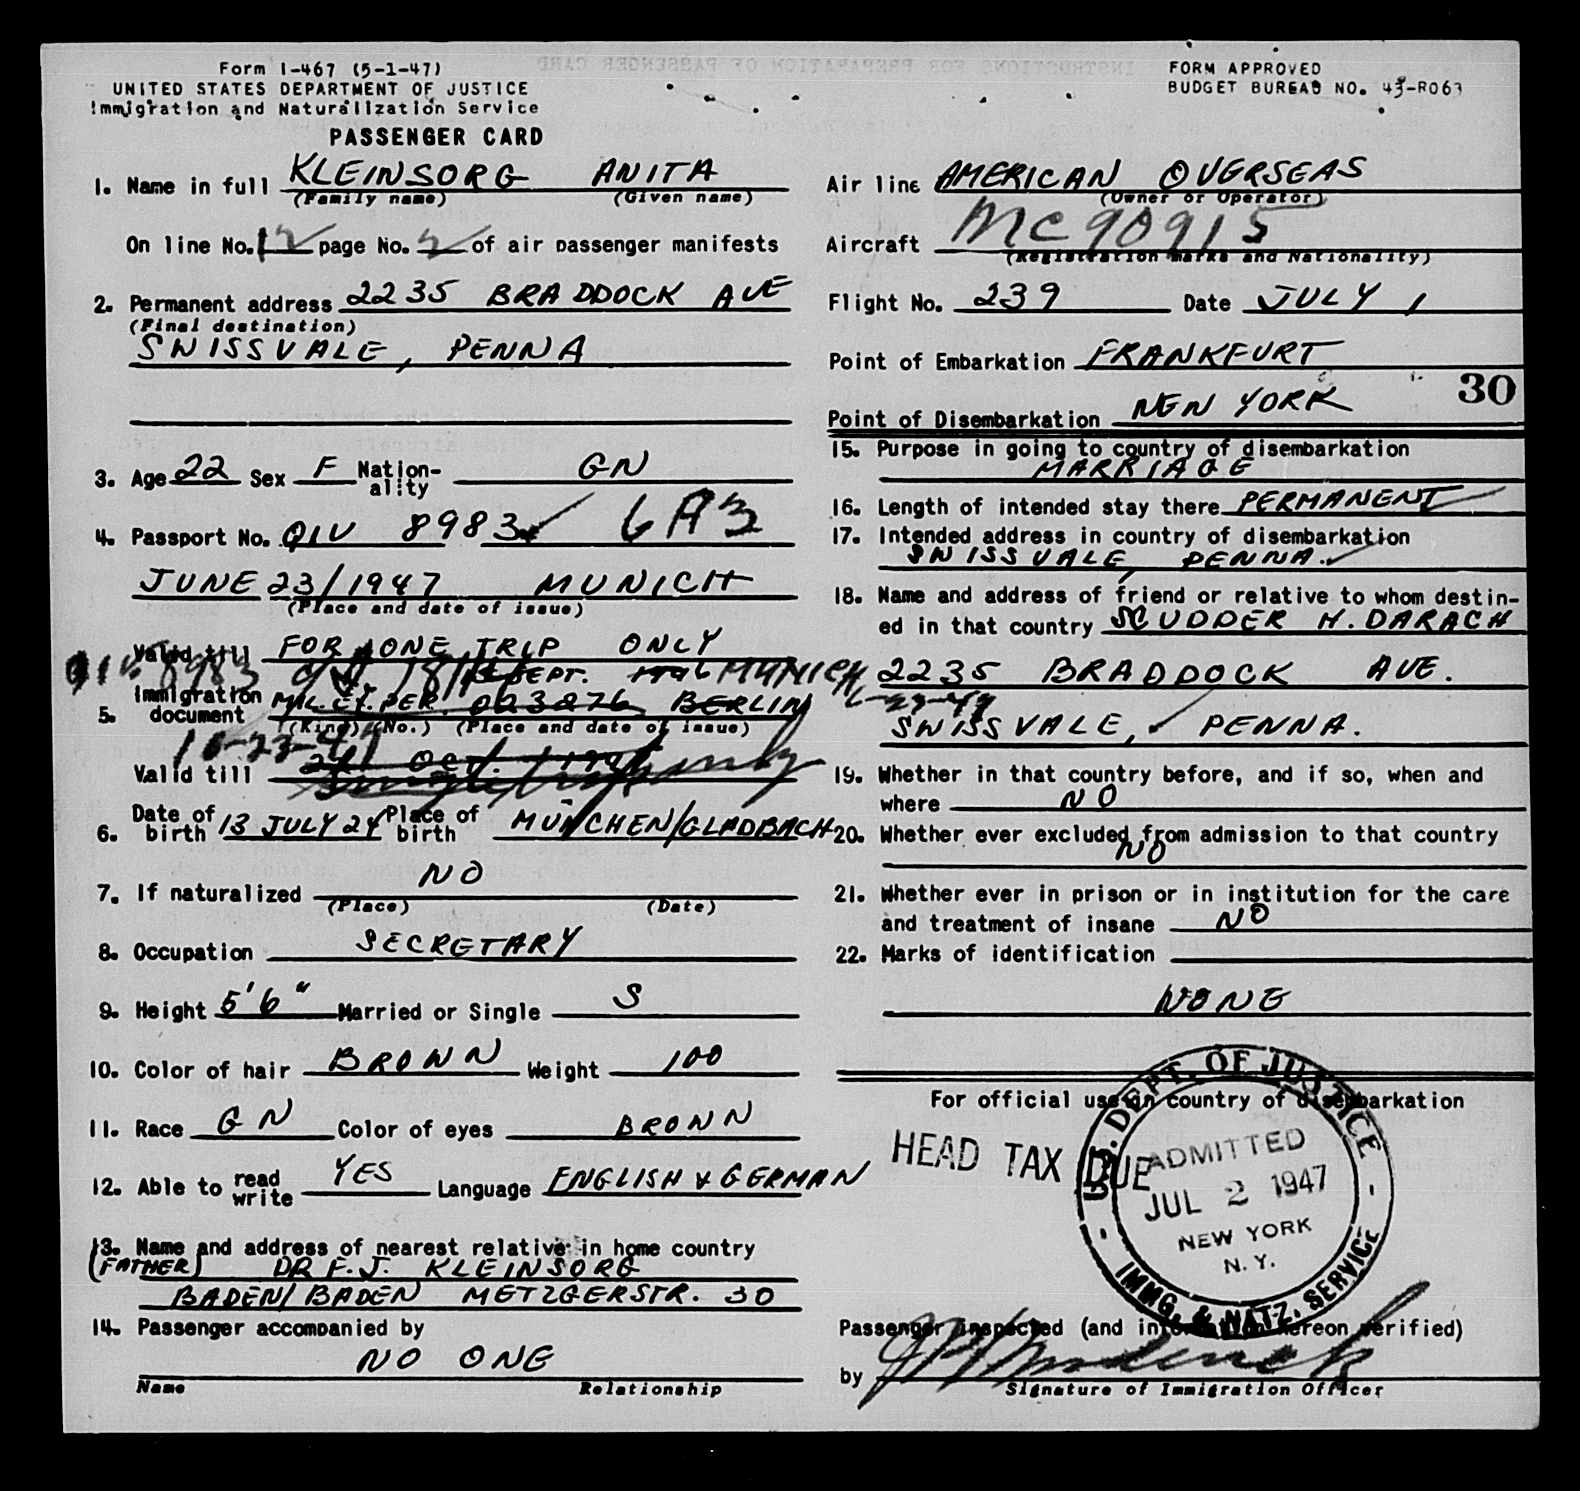 Form I-467 (5-1-47)
UNITED STATES DEPARTMENT OF JUSTICE
Immigration and Naturalization Service
PASSENGER CARD
FORM APPROVED
BUDGET BUREAU NO. 43-R063
1. Name in full KLEINSORG ANITA
(Family name) (Given name)
On line No. 12 page No. 2 of air passenger manifests
2. Permanent address 2235 BRADDOCK AVE
(Final destination)
SWISSVALE, PENNA
3. Age 22 Sex F Nation-ality GN
4. Passport No. QIV 8983 6A3
JUNE 23/1947 MUNICH
(Place and date of issue)
Valid till FOR ONE TRIP ONLY
QIV 8983 SEPT. 1946 MUNICH
5. Immigration document MIL. EX. PER. 023276 BERLIN 6-23-47
(Kind) (No.) (Place and date of issue)
10-23-47
Valid till 24 OCT. 194
6. Date of birth 13 JULY 24 Place of birth MÜNCHEN/GLADBACH
7. If naturalized NO
(Place) (Date)
8. Occupation SECRETARY
9. Height 5'6" Married or Single S
10. Color of hair BROWN Weight 100
11. Race GN Color of eyes BROWN
12. Able to read write YES Language ENGLISH & GERMAN
13. Name and address of nearest relative in home country
(FATHER) DR F.J. KLEINSORG
BADEN/BADEN METZGERSTR. 30
14. Passenger accompanied by
NO ONE
Name Relationship
Air line AMERICAN OVERSEAS
(Owner or Operator)
Aircraft NC90915
(Registration marks and Nationality)
Flight No. 239 Date JULY 1
Point of Embarkation FRANKFURT
30
Point of Disembarkation NEW YORK
15. Purpose in going to country of disembarkation
MARRIAGE
16. Length of intended stay there PERMANENT
17. Intended address in country of disembarkation
SWISSVALE, PENNA.
18. Name and address of friend or relative to whom destin-
ed in that country SCUDDER H. DARACH
2235 BRADDOCK AVE.
SWISSVALE, PENNA.
19. Whether in that country before, and if so, when and
where NO
20. Whether ever excluded from admission to that country
NO
21. Whether ever in prison or in institution for the care
and treatment of insane NO
22. Marks of identification
NONE
For official use in country of disembarkation
HEAD TAX DUE
U.S. DEPT. OF JUSTICE
ADMITTED
JUL 2 1947
NEW YORK
N.Y.
IMMG. & NATZ. SERVICE
Passenger inspected (and information hereon verified)
by
Signature of Immigration Officer